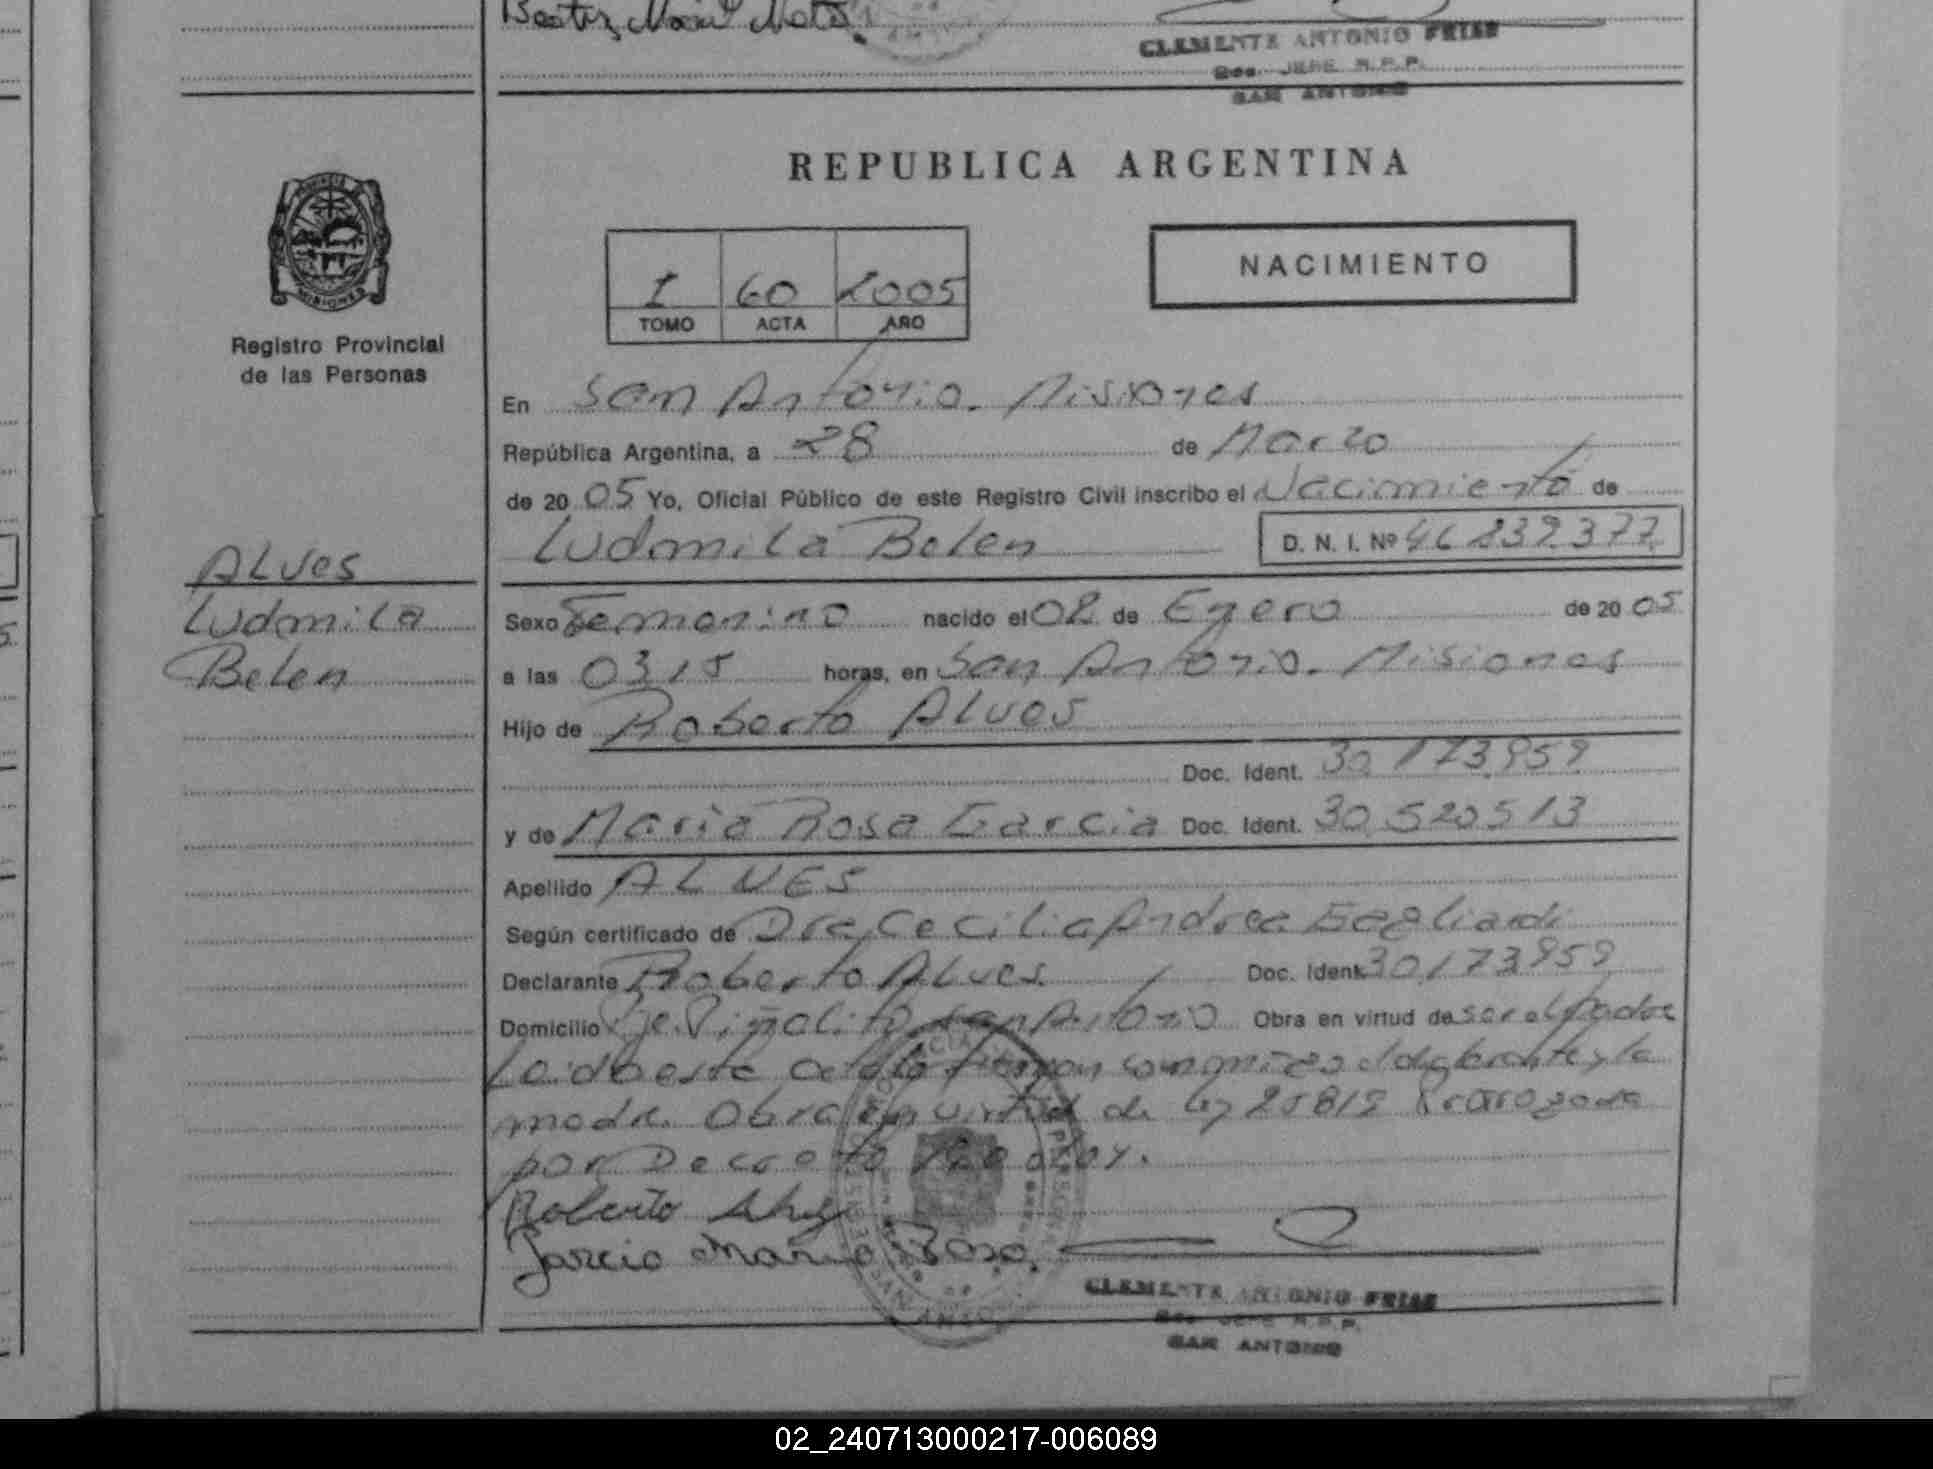 Beatriz
CLEMENTE ANTONIO FRIAS
JEFE R.P.P.
SAN ANTONIO
PROVINCIA DE
MISIONES
Registro Provincial
de las Personas
REPUBLICA ARGENTINA
I 60 2005
TOMO ACTA AÑO
NACIMIENTO
En San Antonio. Misiones
República Argentina, a 28 de Marzo
de 2005 Yo, Oficial Público de este Registro Civil inscribo el Nacimiento de
Ludmila Belen D. N. I. Nº
ALves
Ludmila
Belen
Sexo Femenino nacido el 02 de Enero de 2005
a las 0315 horas, en San Antonio. Misiones
Hijo de Roberto ALves
Doc. Ident. 30 173.959
y de Maria Rosa Garcia Doc. Ident. 30.520513
Apellido ALVES
Según certificado de Dra. Cecilia Andrea Gagliardi
Declarante Roberto ALves. Doc. Ident. 30.173.959
Domicilio Pje. Piñalito San Antonio Obra en virtud de ser el padre
Leida este acta firman conmigo el declarante y la
madre. Obra en virtud de ley 25819 Prorrogada
por Decreto
Roberto Alves
Garcia Maria Rosa.
CLEMENTE ANTONIO FRIAS
JEFE R.P.P.
SAN ANTONIO
02_240713000217-006089